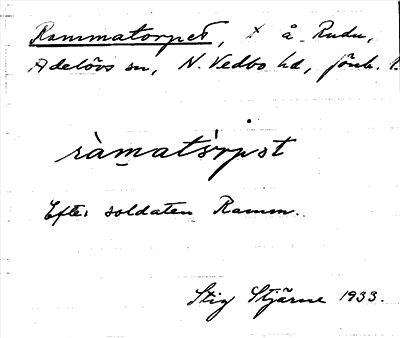 Rammatorpet, x å Rudu,
Adelövs sn, N. Vedbo hd, Jönk. l.
ràmatórpət
Efter soldaten Ramm.
Stig Stjärne 1933.